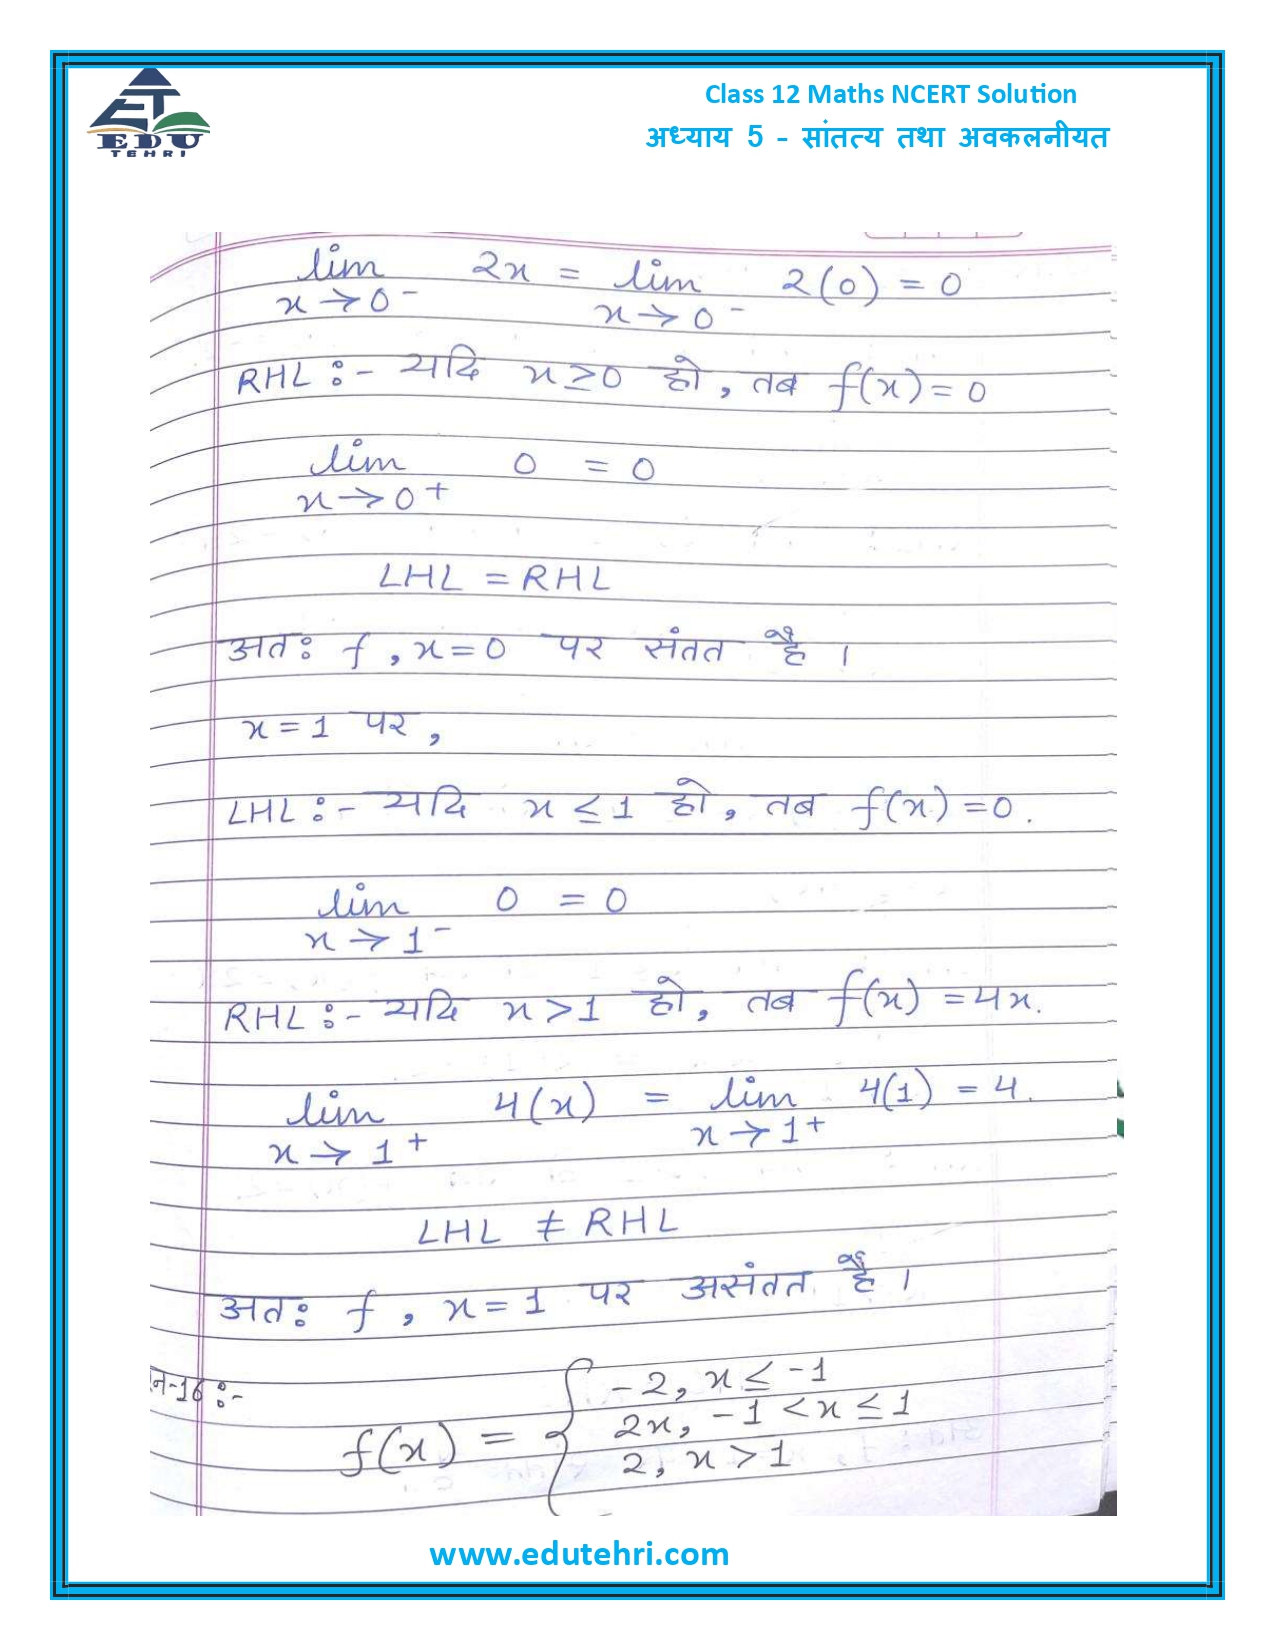 EDU
TEHRI
Class 12 Maths NCERT Solution
अध्याय 5 - सांतत्य तथा अवकलनीयत
lim 2x = lim 2(0) = 0
x→0⁻ x→0⁻
RHL :- यदि x≥0 हो, तब f(x) = 0
lim 0 = 0
x→0⁺
LHL = RHL
अतः f, x=0 पर संतत है।
x=1 पर,
LHL :- यदि x≤1 हो, तब f(x) =0.
lim 0 = 0
x→1⁻
RHL :- यदि x>1 हो, तब f(x) =4x.
lim 4(x) = lim 4(1) = 4.
x→1⁺ x→1⁺
LHL ≠ RHL
अतः f, x=1 पर असंतत है।
न-16 :-
f(x) = { -2, x≤-1
2x, -1<x≤1
2, x>1
www.edutehri.com